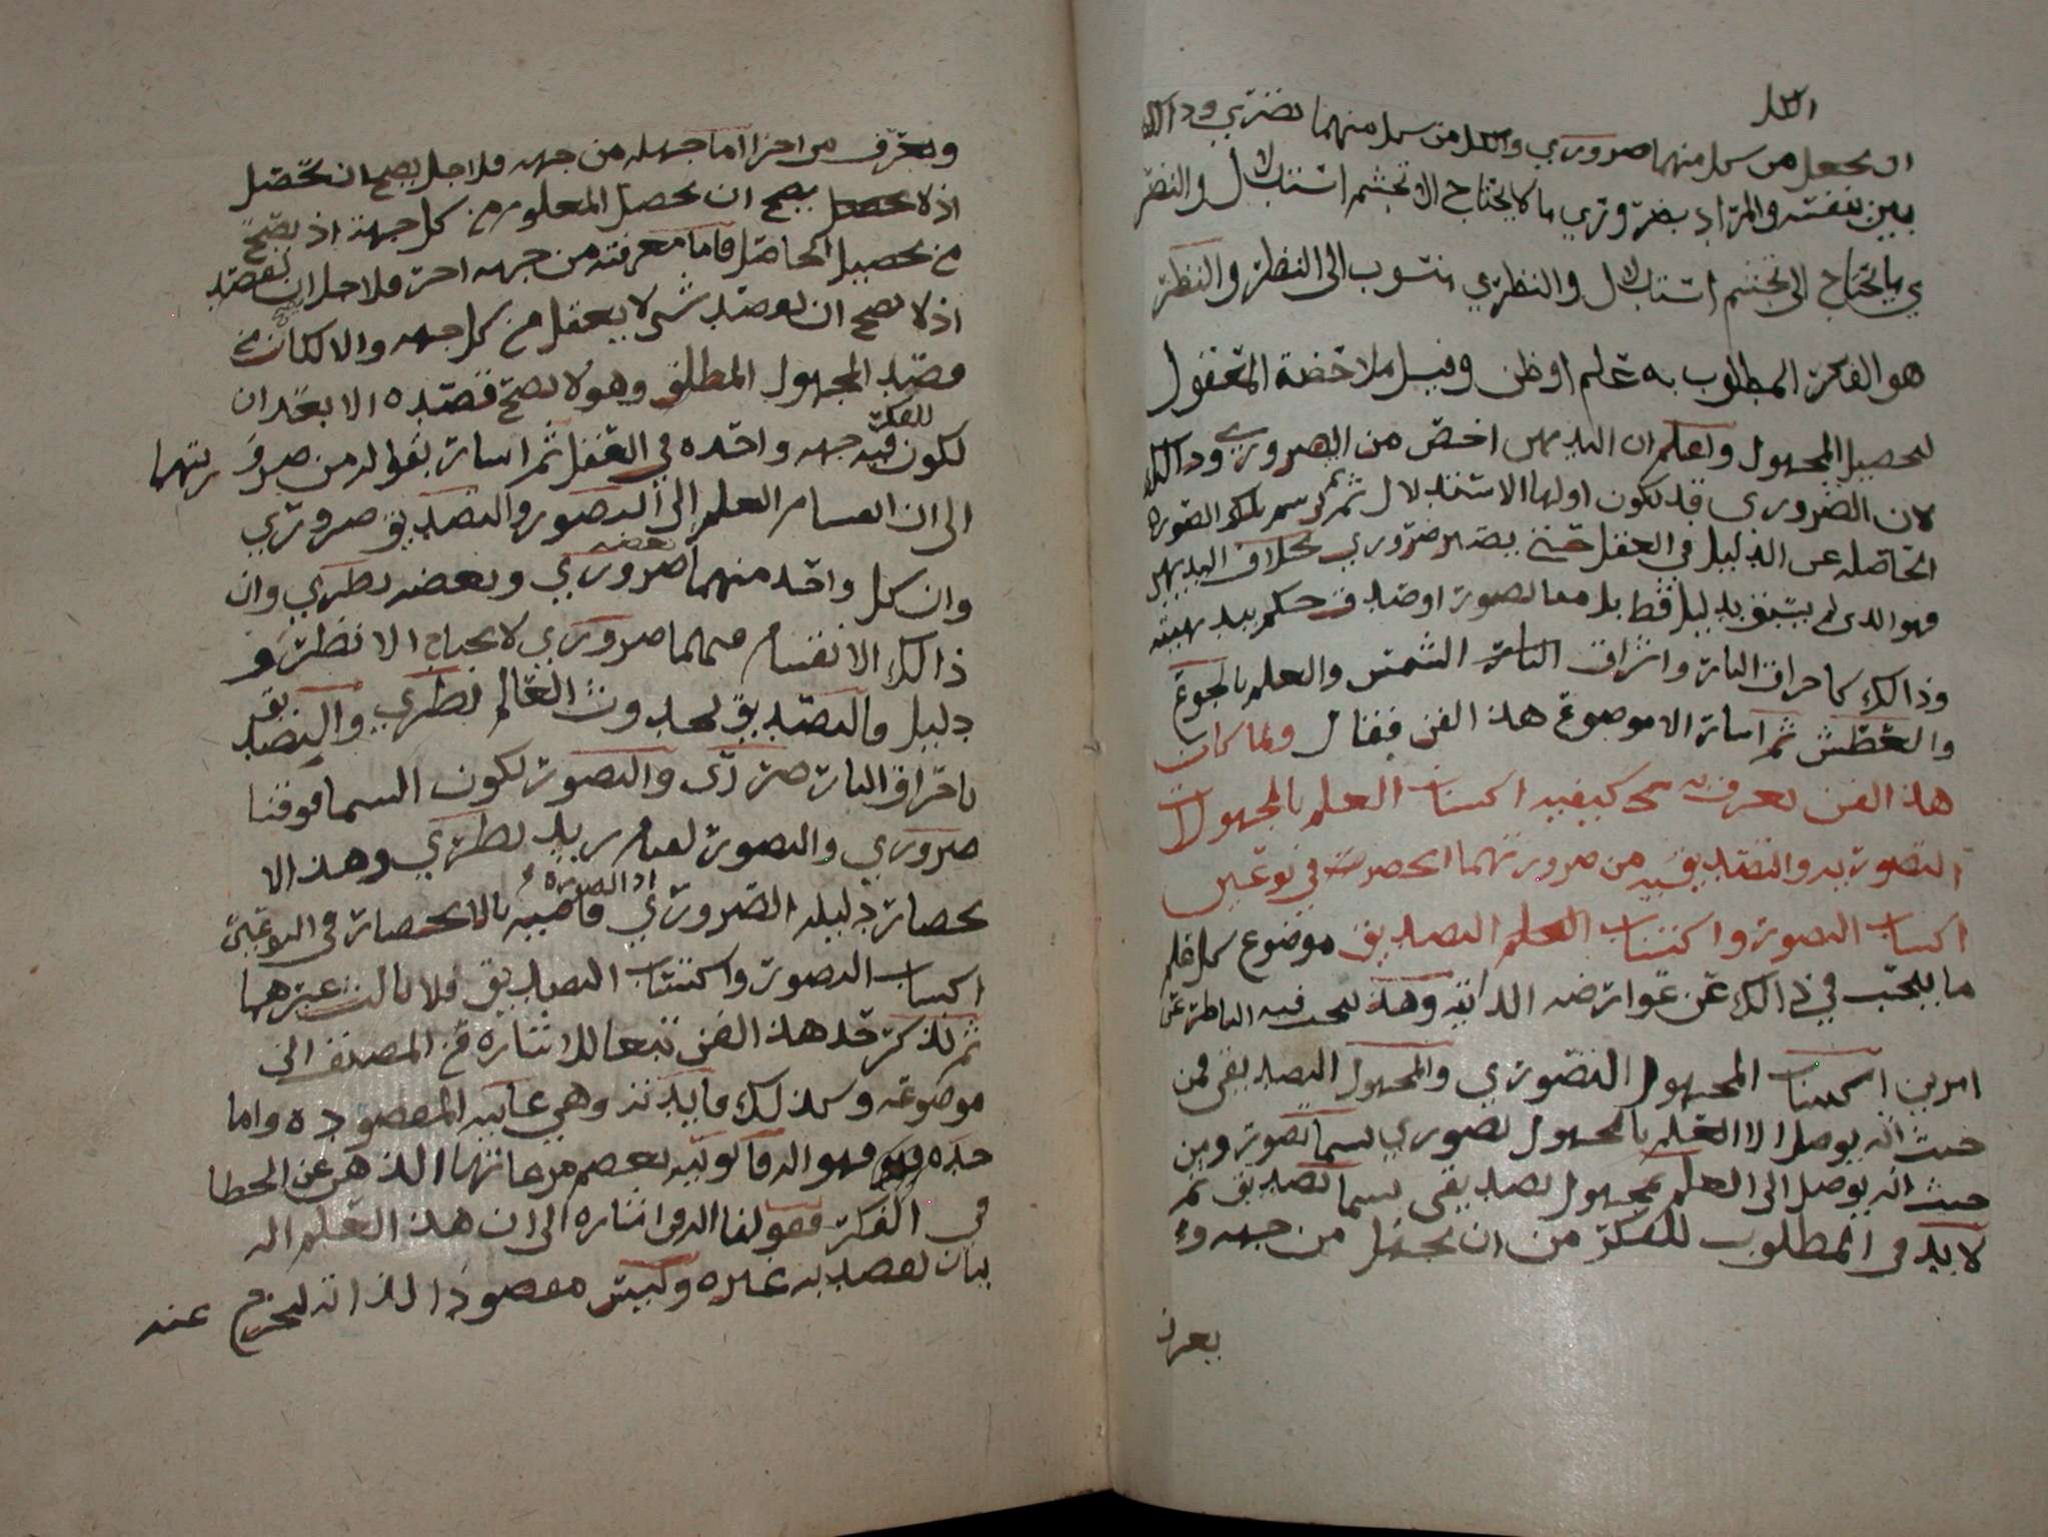 الكل
ان يحصل من كل منهما ضروري والكل من كل منهما نضري وذالك
بين بنفسه والمراد بضروري ما لا يحتاج الا تجشم استدلال والنضر
ي ما يحتاج الى تجشم استدلال والنظري منسوب الى النظر والنظر
هو الفكر المطلوب به علم او ظن وقيل ملاحضة المعقول
لتحصيل المجهول واعلم ان البديهي اخص من الضروري وذالك
لان الضروري قد يكون اولها الاستدلال ثم ترسم تلك الصورة
الحاصله عن الدليل في العقل حتى يصير ضروري بخلاف البديهي
فهو الذي لم يسبق بدليل قط بل مما تصور او صدق حكم ببديهيته
وذالك كاحراق النار واشراق الشمس والعلم بالجوع
والعطش ثم اشار الا موضوع هذا الفن فقال ولما كان
هذا الفن يعرف به كيفيه اكتساب العلم بالمجهولات
التصوريه والتصديقيه من ضرورتهما انحصرت في نوعين
اكساب التصور واكتساب العلم التصديق موضوع كل علم
ما يبحث في ذالك عن عوارضه الذاتيه وهذه يبحث فيه الناظر عن
امرين اكتساب المجهول التصوري والمجهول التصديقي فمن
حيث انه يوصل الا العلم بالمجهول تصوري يسما تصور ومن
حيث انه يوصل الى العلم بمجهول تصديقي يسما تصديق ثم
لا بد في المطلوب للفكر من ان يجهل من جهه و
يعرف
ويعرف من اخرا اما جهله من جهه فلاجل يصح ان تحصل
اذ لا يصح ان يحصل المعلوم من كل جهة اذ يصح
من تحصيل الحاصل فاما معرفته من جهه اخر فلاجل ان يقصد
اذ لا يصح ان يقصد شي لا يعقل من كل جهه والا لكان من
قصد المجهول المطلق وهو لا يصح قصده الا بعد ان
يكون فيه للفكر جهه واحده في العقل ثم اشار بقوله من ضرورتهما
الى ان انقسام العلم الى التصور والتصديق ضروري
وان كل واحد منهما بعضه ضروري وبعضه نظري وان
ذالك الانقسام فيهما ضروري لا يحتاج الا نظر و
دليل والتصديق لحدوث العالم نظري والتصديق
باحراق النار ضروري والتصور لكون السما فوقنا
ضروري والتصور لقيام زيد نظري وهذا الا
نحصار دليله الضروري اذ الضرورة قاضيه بالانحصار في النوعين
اكساب التصور واكتساب التصديق فلا ثالث غيرهما
ثم نذكر حد هذا الفن تبعا للاشاره من المصنف الى
موضوعه وكذلك فايدته وهي غايته المقصوده واما
حده فهو اله قانونيه يعصم مرعاتها الذهن عن الخطا
في الفكر فقولنا اله اشاره الى ان هذا العلم اله
بيان يقصد به غيره وليس مقصودا لذاته ليخرج عنه